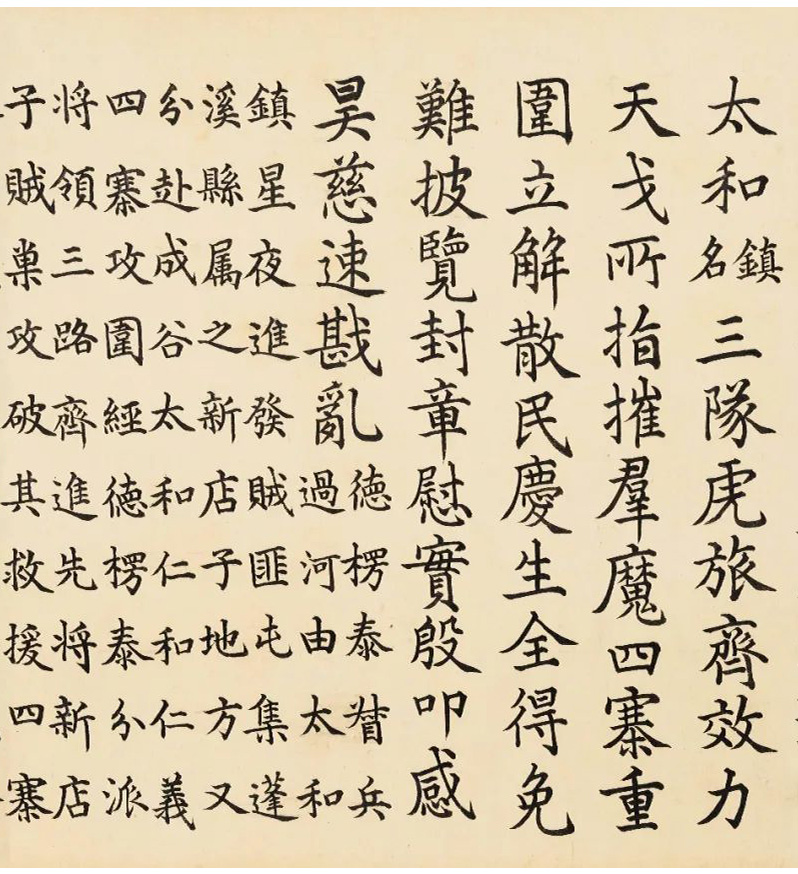 太和鎮名三隊虎旅齊效力
天戈所指摧羣魔四寨重
圍立解散民慶生全得免
難披覽封章慰實殷叩感
昊慈速戡亂德楞泰督兵
過河由太和
鎮星夜進發賊匪屯集蓬
溪縣属之新店子地方又
分赴成谷太和仁和仁義
四寨攻圍經德楞泰分派
将領三路齊進先将新店
子賊巢攻破其救援四寨